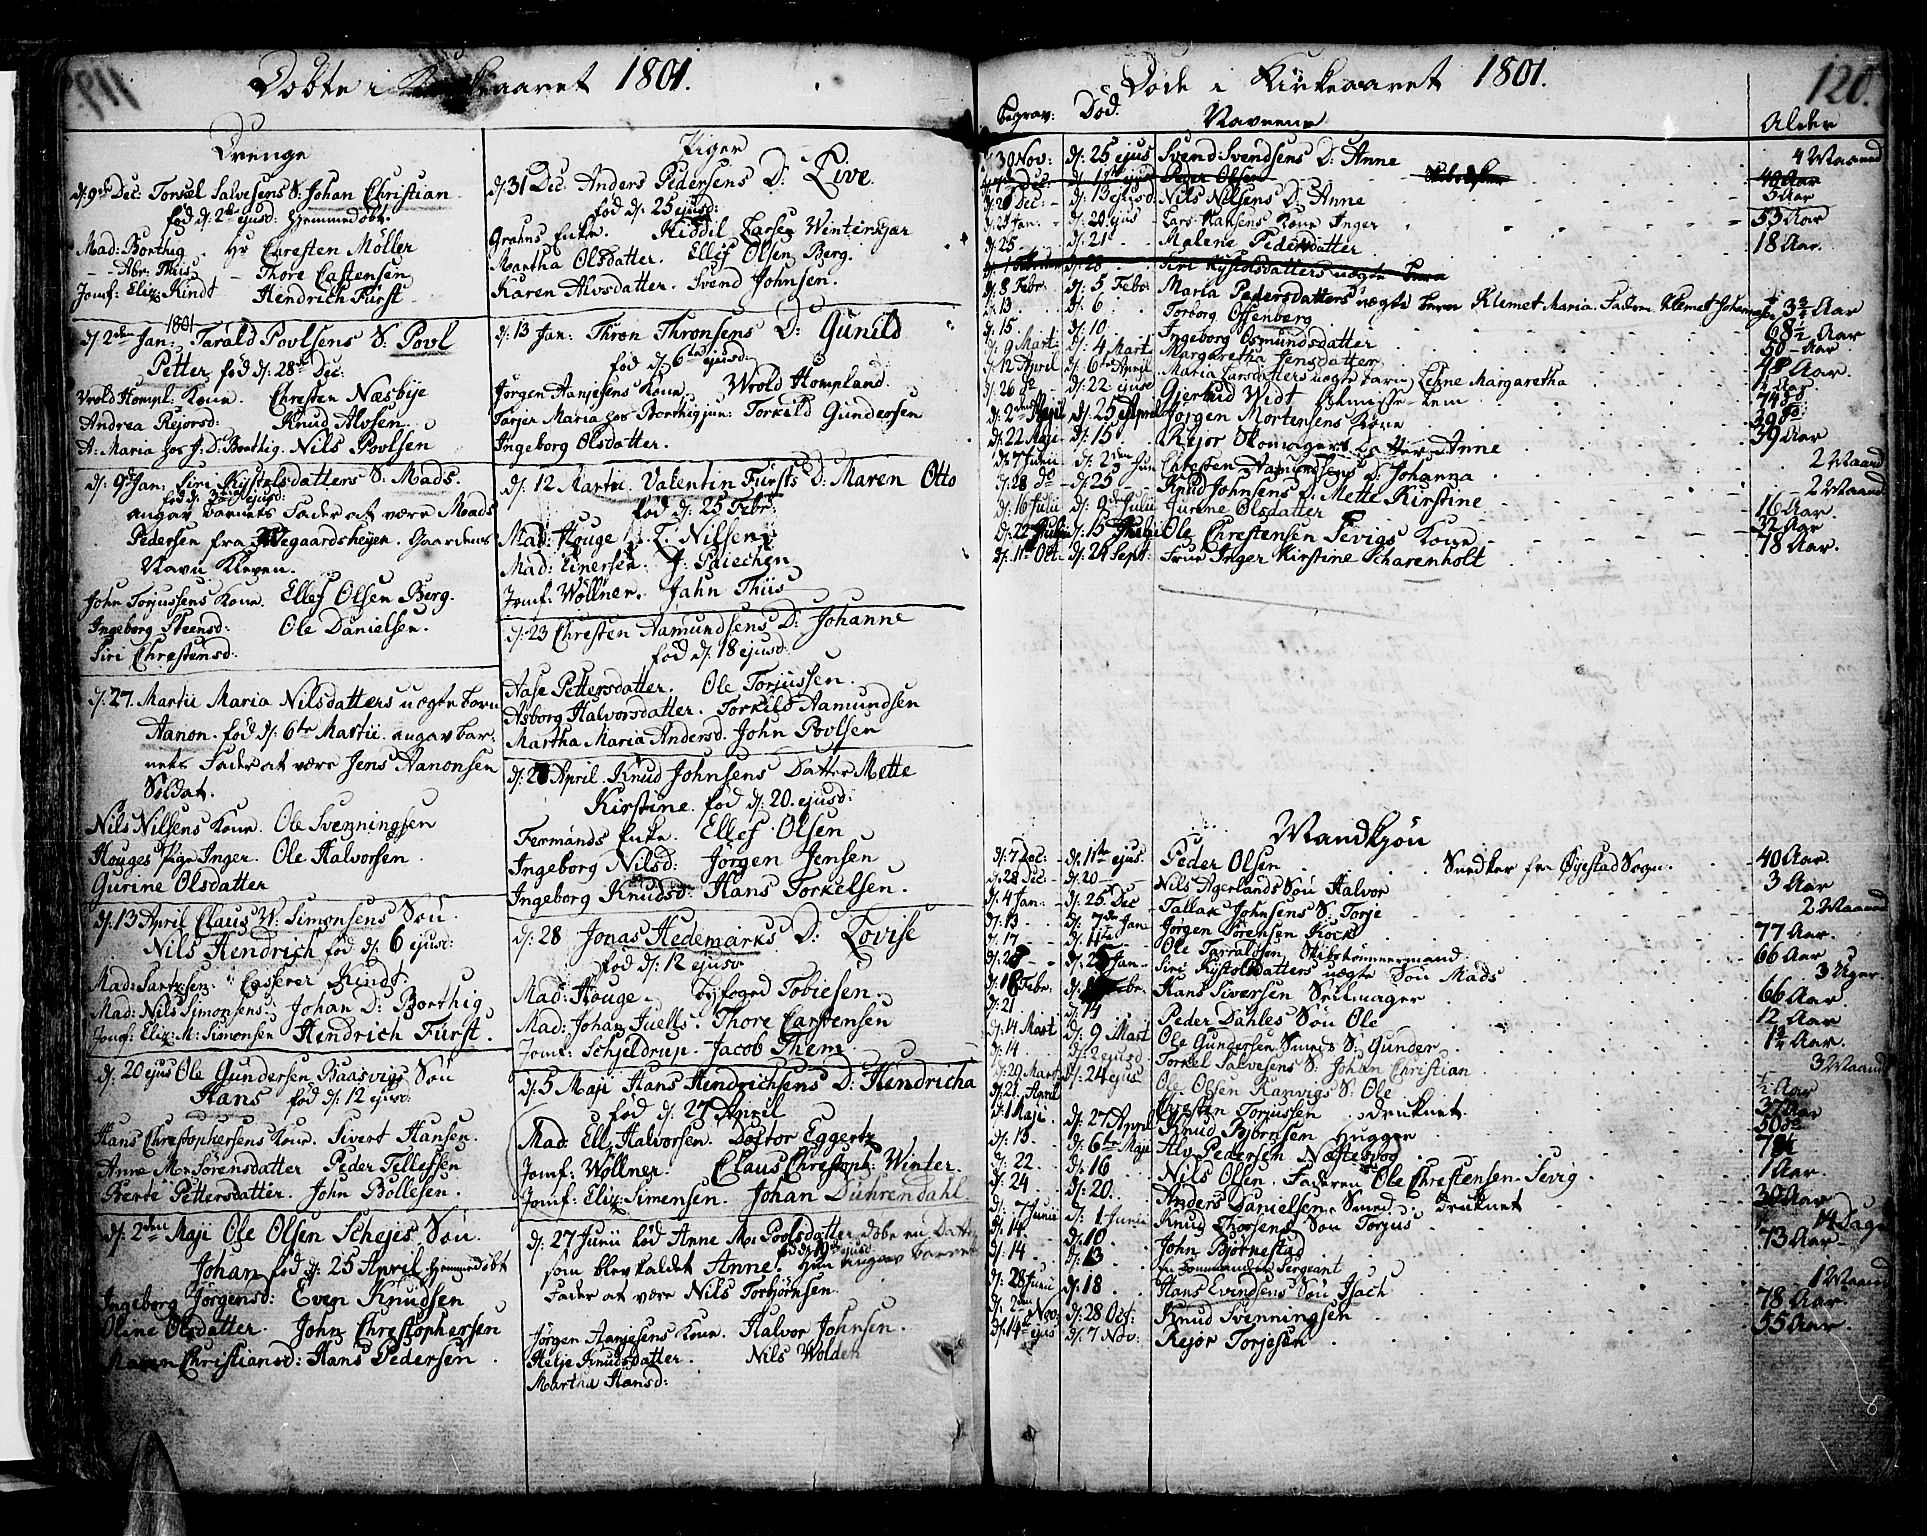 119.
Döbte i Kirkeaaret 1801.
Drenge
d. 9de Dec: Torkel Salvesens S. Johan Christian
föd d. 2de ejusd: Hjemmedöbt.
Mad: Borthig. Hr Chresten Möller
— Abr. Thiis — Thore Castensen
Jomf: Eliz: Kindt Hendrich Fürst
1801
d. 2den Jan: Tarald Povlsens S: Povl
Petter föd d: 28de Dec:
Wrold Hompl: Kone. Chresten Næsbÿe
Andrea Rejersd: Knud Alvsen.
A: Maria hos J. D: Borthig. Nils Povlsen
d: 9de Jan: Siri Kÿstelsdatters S: Mads.
föd d: 3die ejusd:
angav Barnets Fader at være Mads
Pedersen fra Wegaardsheyen. Gaardens
Navn Kleven.
John Torjussens Kone. Ellef Olsen Berg.
Ingeborg Steensd: Ole Danielsen.
Siri Christensd:
d: 27. Martii Maria Nilsdatters uægte barn
Aanon. föd d: 6te Martii. angav bar-
nets Fader at være Jens Aanonsen
Soldat.
Nils Nilsens Kone. Ole Svenningsen
Houges Pige Inger. Ole Halvorsen.
Gurine Olsdatter
d: 13 April Claus W: Simonsens Sön
Nils Hendrich föd d: 6 ejusd:
Mad: Lartzsen. Casserer Kindt
Mad: Nils Simonsens. Johan D: Borthig
Jomf: Eliz: M: Simonsen Hendrich Fürst.
d: 20 ejus Ole Gundersen Baasvigs Sön
Hans föd d: 12 ejusd:
Hans Christophersens Kone. Sivert Hansen.
Anne M: Sörensdatter Peder Tellefsen
Berte Pettersdatter. John Böllesen.
d: 2den Maji Ole Olsen Schejes Sön
Johan föd d: 25 April. Hjemmedöbt
Ingeborg Jörgensd: Even Knudsen
Oline Olsdatter. John Chrestophersen
Maren Christiansd: Hans Pedersen
Piger
d: 31 Dec. Anders Pedersens D: Live.
föd d. 25 ejusd:
Grahns Enke. Kiddil Larsen Winterkjær
Martha Olsdatter. Ellef Olsen Berg.
Karen Alvsdatter. Svend Johnsen.
d: 13 Jan: Thron Thronsens D: Gunild
föd d. 6te ejusd:
Jörgen Aanjesens Kone. Wrold Hompland.
Tarjer Maria hos Borthig jun: Torkild Gundersen
Ingeborg Olsdatter.
d: 12 Martii. Valentin Fürsts D: Maren Otto
föd d. 25 Febr:
Mad: Houge. L. Nilsen
Mad: Einersen. J. Paiechen
Jomf: Wöllner. Jahn Thiis
d: 23 Chresten Aamundsens D: Johanne
föd d. 18 ejusd:
Aase Pettersdatter. Ole Torjussen.
Asborg Halvorsdatter. Torkild Aamundsen
Martha Maria Andersd. John Povlsen
d: 26 April. Knud Johnsens Datter Mette
Kirstine. föd d: 20. ejusd:
Fermands Enke. Ellef Olsen
Ingeborg Nilsd: Jörgen Jensen
Ingeborg Knudsd: Hans Torkelsen.
d: 28 Jonas Hedemarks D: Lovise
föd d: 12 ejusd
Mad: Houge. Byfoged Tobiesen.
Mad: Johan Juells. Thore Carstensen
Jomf: Schjeldrup. Jacob Them.
d: 5 Maji Hans Hendrichsens D: Hendricha
föd d: 27 April
Mad: Ell: Halvorsen. Doctor Eggertz
Jomf: Wöllner. Claus Chrestoph: Winter.
Jomf: Eliz: Simensen. Johan Duhrendahl.
d: 27 Junii lod Anne M: Povlsdatter döbe en Datter
föd d: 19 ejusd.
som blev kaldet Anne. Hun angav barnets
Fader at være Nils Torbjörnsen.
Jörgen Aanjesens Kone. Halvor Johnsen.
Helje Knudsdatter. Nils Wolden
Martha Hansd:
120.
Döde i Kirkeaaret 1801.
Begrav: Död. Navnene Alder
d. 30 Nov: d: 25 ejus Svend Svendsens D: Anne 4 Maaned
d. 7de Dec: d: 1ste ejus Peder Olsen 40 Aar
d. 26 Dec: d: 13 ejusd Nils Nilsens D: Anne 5 Aar
d. 24 Jan. d: 20 ejus Lars Hansens Kone Inger 53 Aar
d. 25 d: 21 Malene Pedersdatter 18 Aar.
d: 1 Februar d: 28 Siri Kystelsdatters uægte Barn
d. 8 Febr. d: 5 Febr Maria Pedersdatters uægte barn Klemet Maria. Faderen Klemet Johannesen 3 3/4 Aar
d. 13 d: 6 Torborg Offenberg 68 1/2 Aar
d. 15 d. 10 Ingeborg Osmundsdatter 50 Aar
d. 9 Mart d: 4 Mart Margaretha Jensdatter 48 Aar.
d. 12 April d: 6te April Maria Larsdatters uægte barn Lehne Margaretha
d. 26 de d: 22 ejusd Gjertrud Widt 74 do
d: 2den Maji d: 25 April Jörgen Mortensens Kone 39 do
d: 22 Maji d: 15 Rejer Skomagers Datter Anne 39 Aar
d: 7 Junii d: 2den Jun Chresten Aamundsens D: Johanna 2 Maaned
d: 28 do d: 25 Knud Johnsens D: Mette Kirstine 2 Maaned
d: 16 Julii d: 9de Julii Gurine Olsdatter 16 Aar.
d: 22 Julii d: 15 Julii Ole Chrestensen Sevigs Kone 32 Aar
d: 11te Oct. d: 24 Sept: Frue Inger Kirstine Scharenholt 78 Aar.
Mandkjön
d: 7 Dec: d: 1ste ejus. Peder Olsen. Snedker fra Öyestad Sogn. 40 Aar.
d: 28 Dec: d: 20 Nils Agerlands Sön Halvor 3 Aar
d. 4 Jan: d: 25 Dec Tallak Johnsens S: Torje 2 Maaned
d: 13 d: 7de Jan Jörgen Sörensen Kock 77 Aar.
d: 17 d: 11te Ole Tarraldsen, Skibstömmermand 66 Aar
d: 28 d: 25 Jan Siri Kystelsdatters uægte Sön Mads 3 Uger.
d: 18 Febr: Hans Siversen Seilmager 66 Aar.
d: 21 d: 14 Peder Dahles Sön Ole 12 Aar
d: 14 Mart d: 9 Mart Ole Gundersen Smeds S: Gunder 1 3/4 Aar.
d: 14 d: 2 ejusd Torkel Salvesens S: Johan Christian 3 Maaned
d: 29 Mart d: 24 ejus Ole Olsen Ranvigs S: Ole 1/2 Aar
d: 21 April Chresten Torjussen. Druknet. 37 Aar
d: 1 Maji d: 27 April Knud Björnsen Hugger 50 do
d: 13 d: 6te Maji Alv Pedersen Næstevog 78
d: 22 d: 16 Nils Olsen. Faderen Ole Chrestensen Sevig 1 Aar.
d: 24 d: 20. Anders Danielsen Smed. Druknet 30 Aar
d: 7 Junii d: 1 Junii Knud Thorsens Sön Torjus 14 Dage
d: 14 d: 10 John Björnestad 73 Aar
d: 14 d: 13 en Commandeur Sergeant
d: 28 Junii d: 18 Hans Evindsens Sön Jsach 1 Maaned
d: 2den Nov: d: 28 Oct: Knud Svenningsen 78 Aar.
d: 14de ejus d: 7 Nov: Rejer Torjesen 55 Aar.